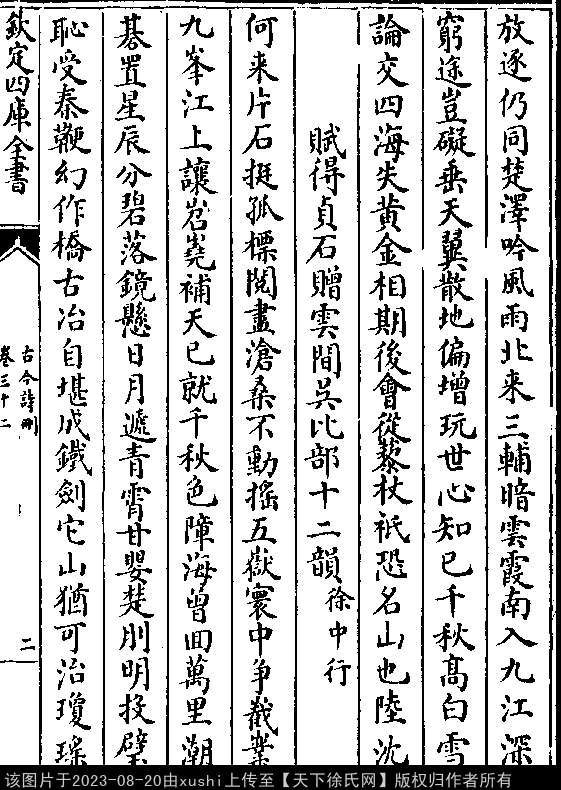 放逐仍同楚澤吟風雨北来三輔暗雲霞南入九江深
窮途豈礙垂天翼散地偏增玩世心知已千秋髙白雪
論交四海失黄金相期後會從藜杖祇恐名山也陸沈
賦得貞石贈雲間吳比部十二韻 徐中行
何来片石挺孤標閲盡滄桑不動摇五嶽寰中争巀嶪
九峯江上讓岧嶤補天已就千秋色障海曾回萬里潮
碁置星辰分碧落鏡懸日月遞青霄甘嬰楚刖明投璧
恥受秦鞭幻作橋古冶自堪成鐵劍它山猶可治瓊瑶
欽定四庫全書
古今詩刪
卷三十二
二
该图片于2023-08-20由xushi上传至【天下徐氏网】版权归作者所有